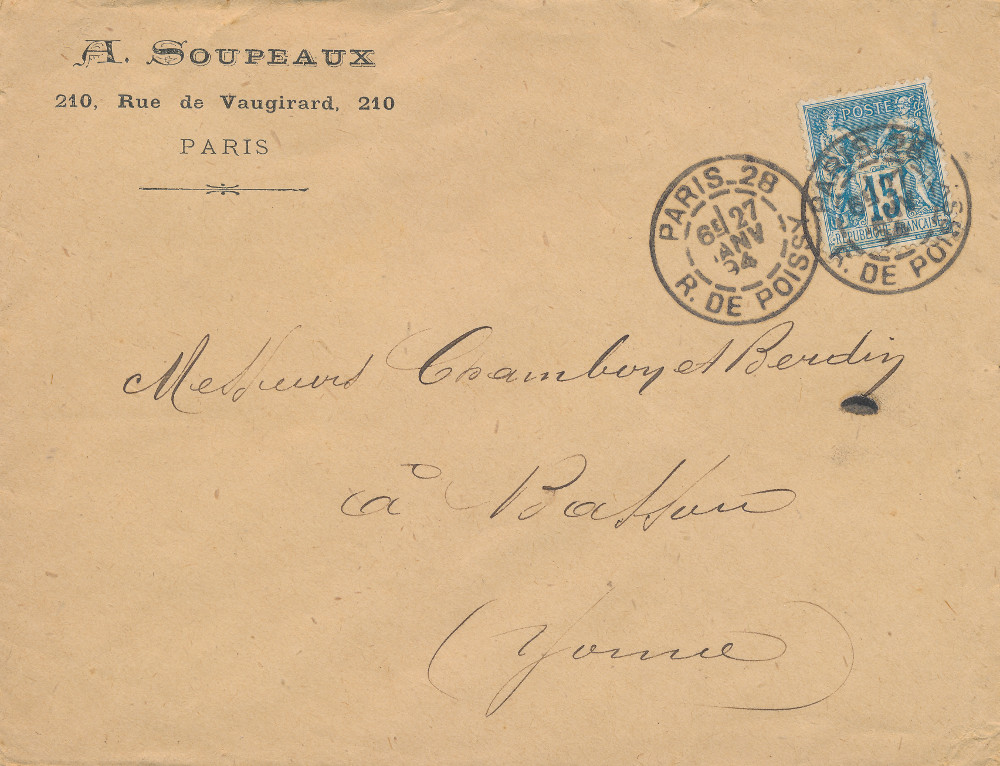 A. SOUPEAUX
210, Rue de Vaugirard, 210
PARIS
POSTES
15
RÉPUBLIQUE FRANÇAISE
PARIS_28
6E 27
JANV
94
R. DE POISSY
PARIS_28
R. DE POISSY
Messieurs Chambon et Berdin
à Bassou
(Yonne)